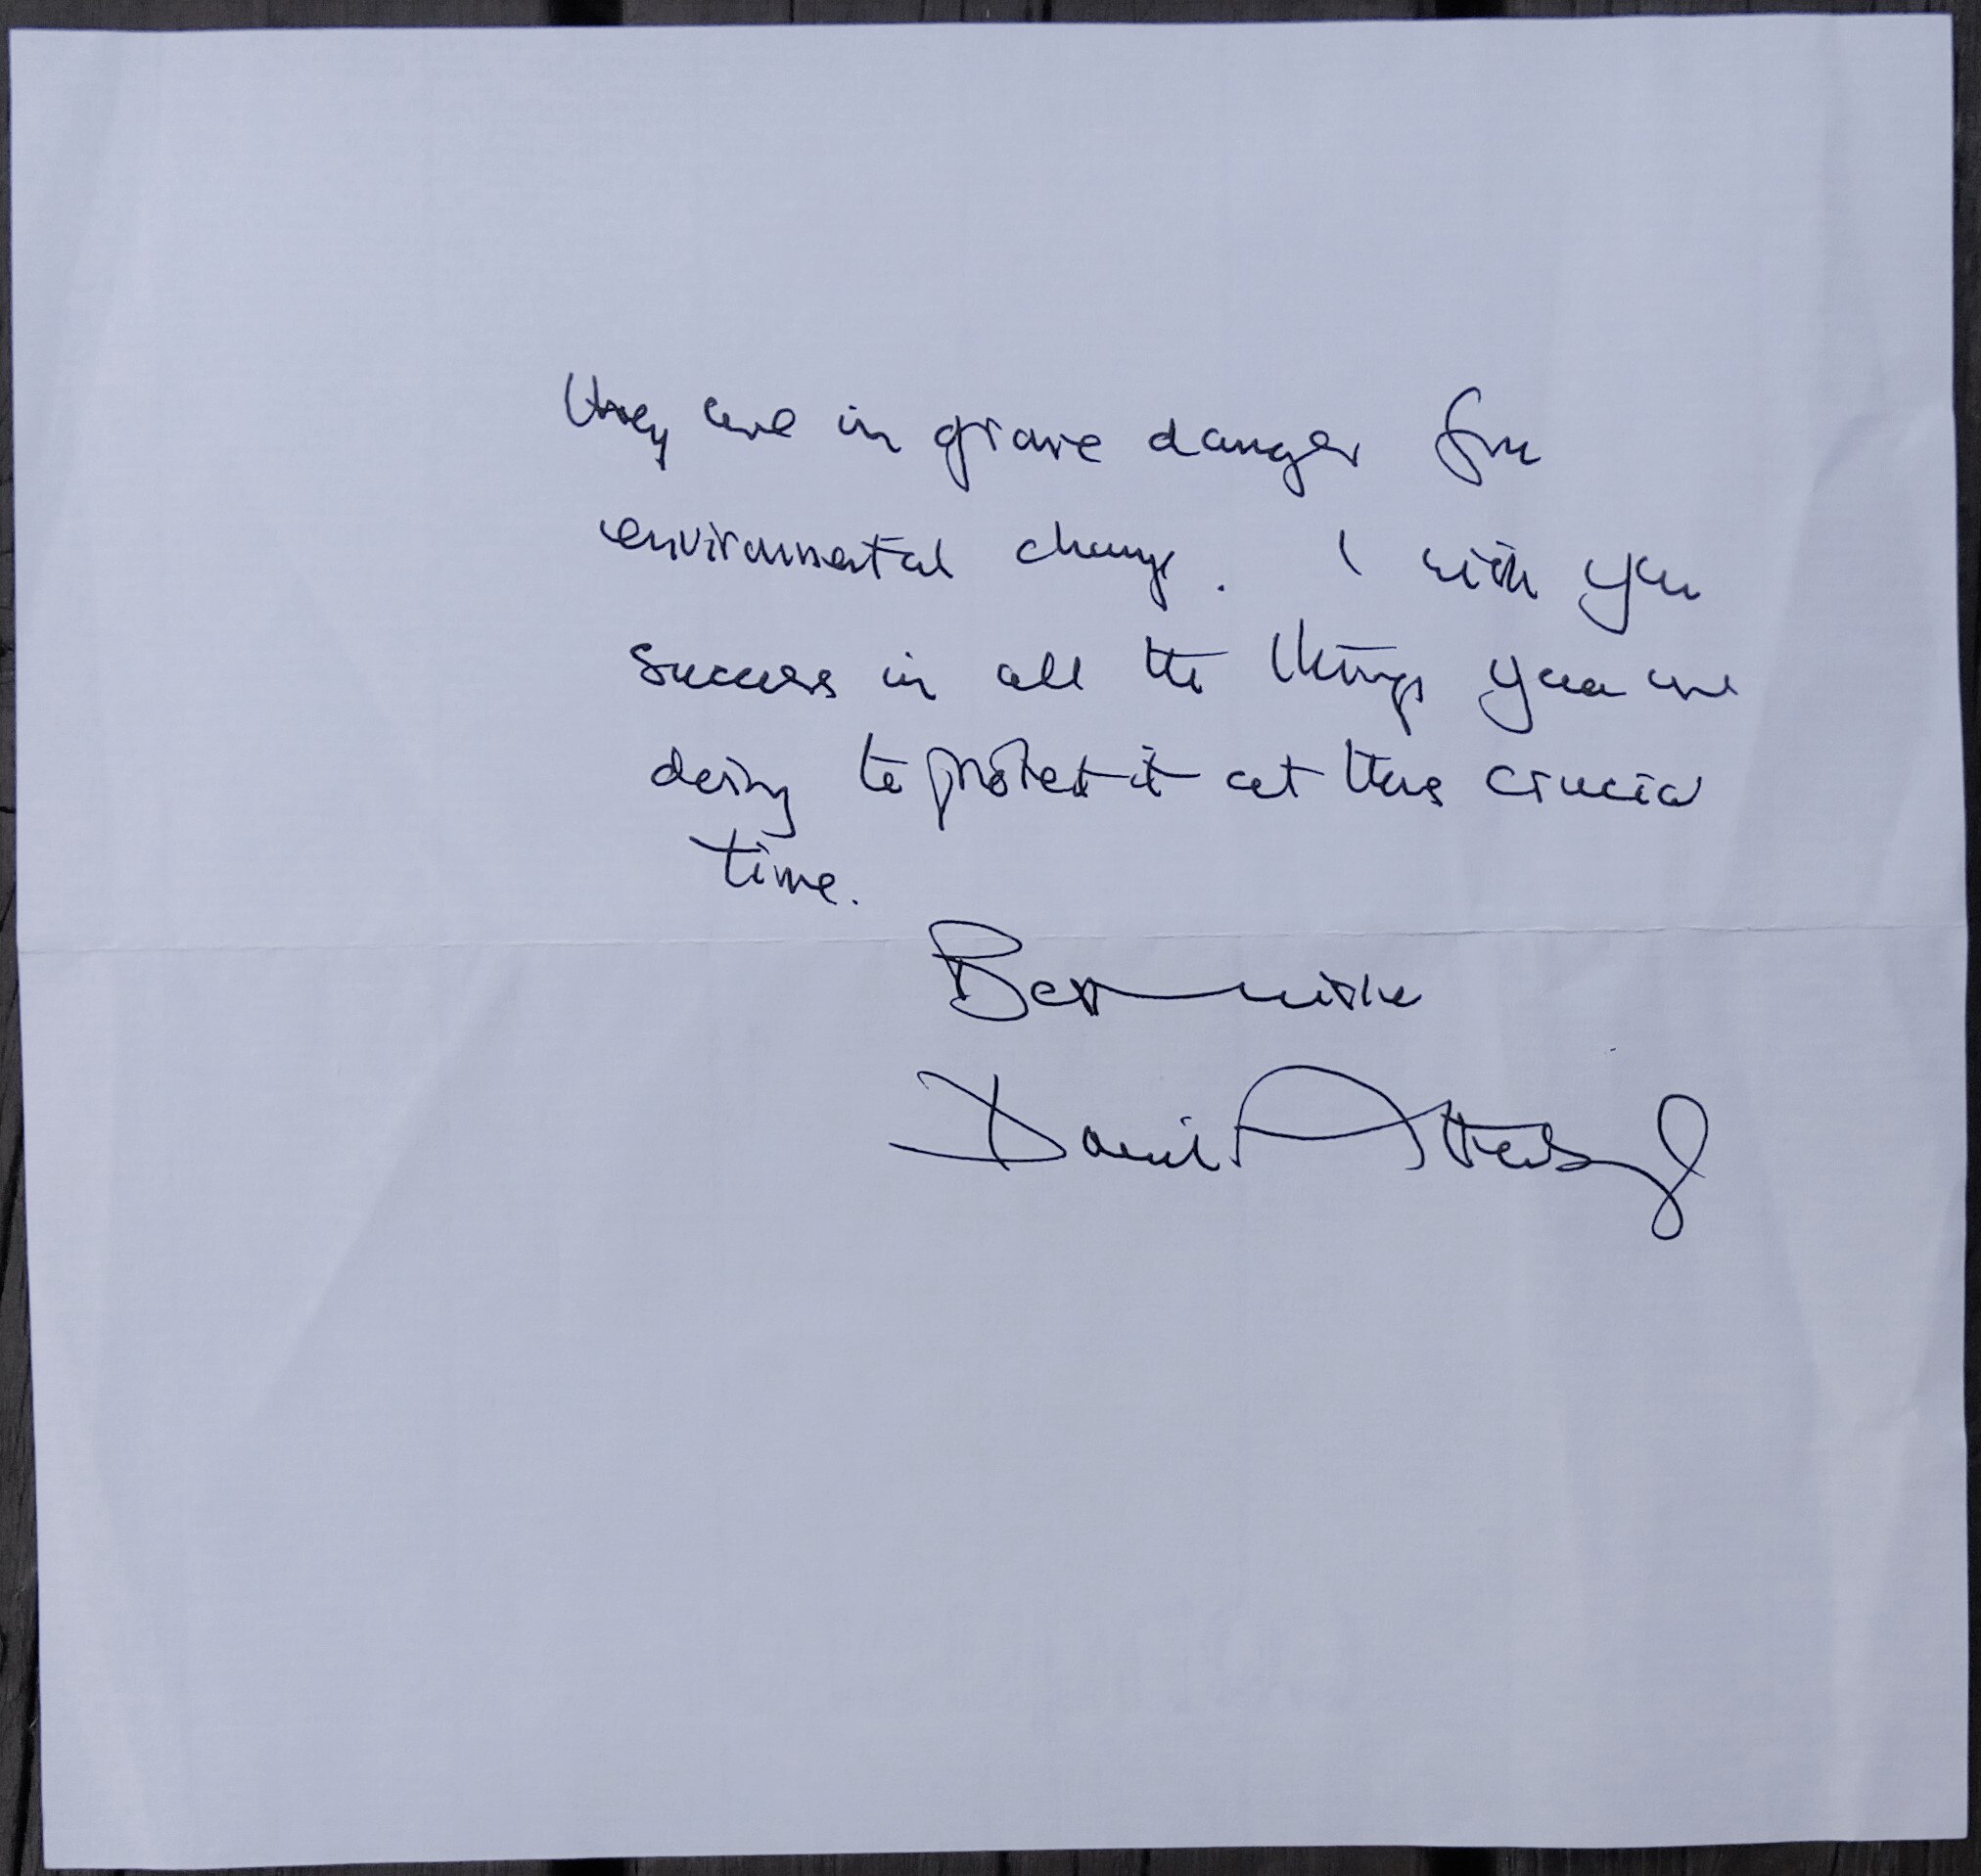 they are in grave danger from
environmental change. I wish you
success in all the things you are
doing to protect it at this crucial
time.
Best wishes
David Attenborough